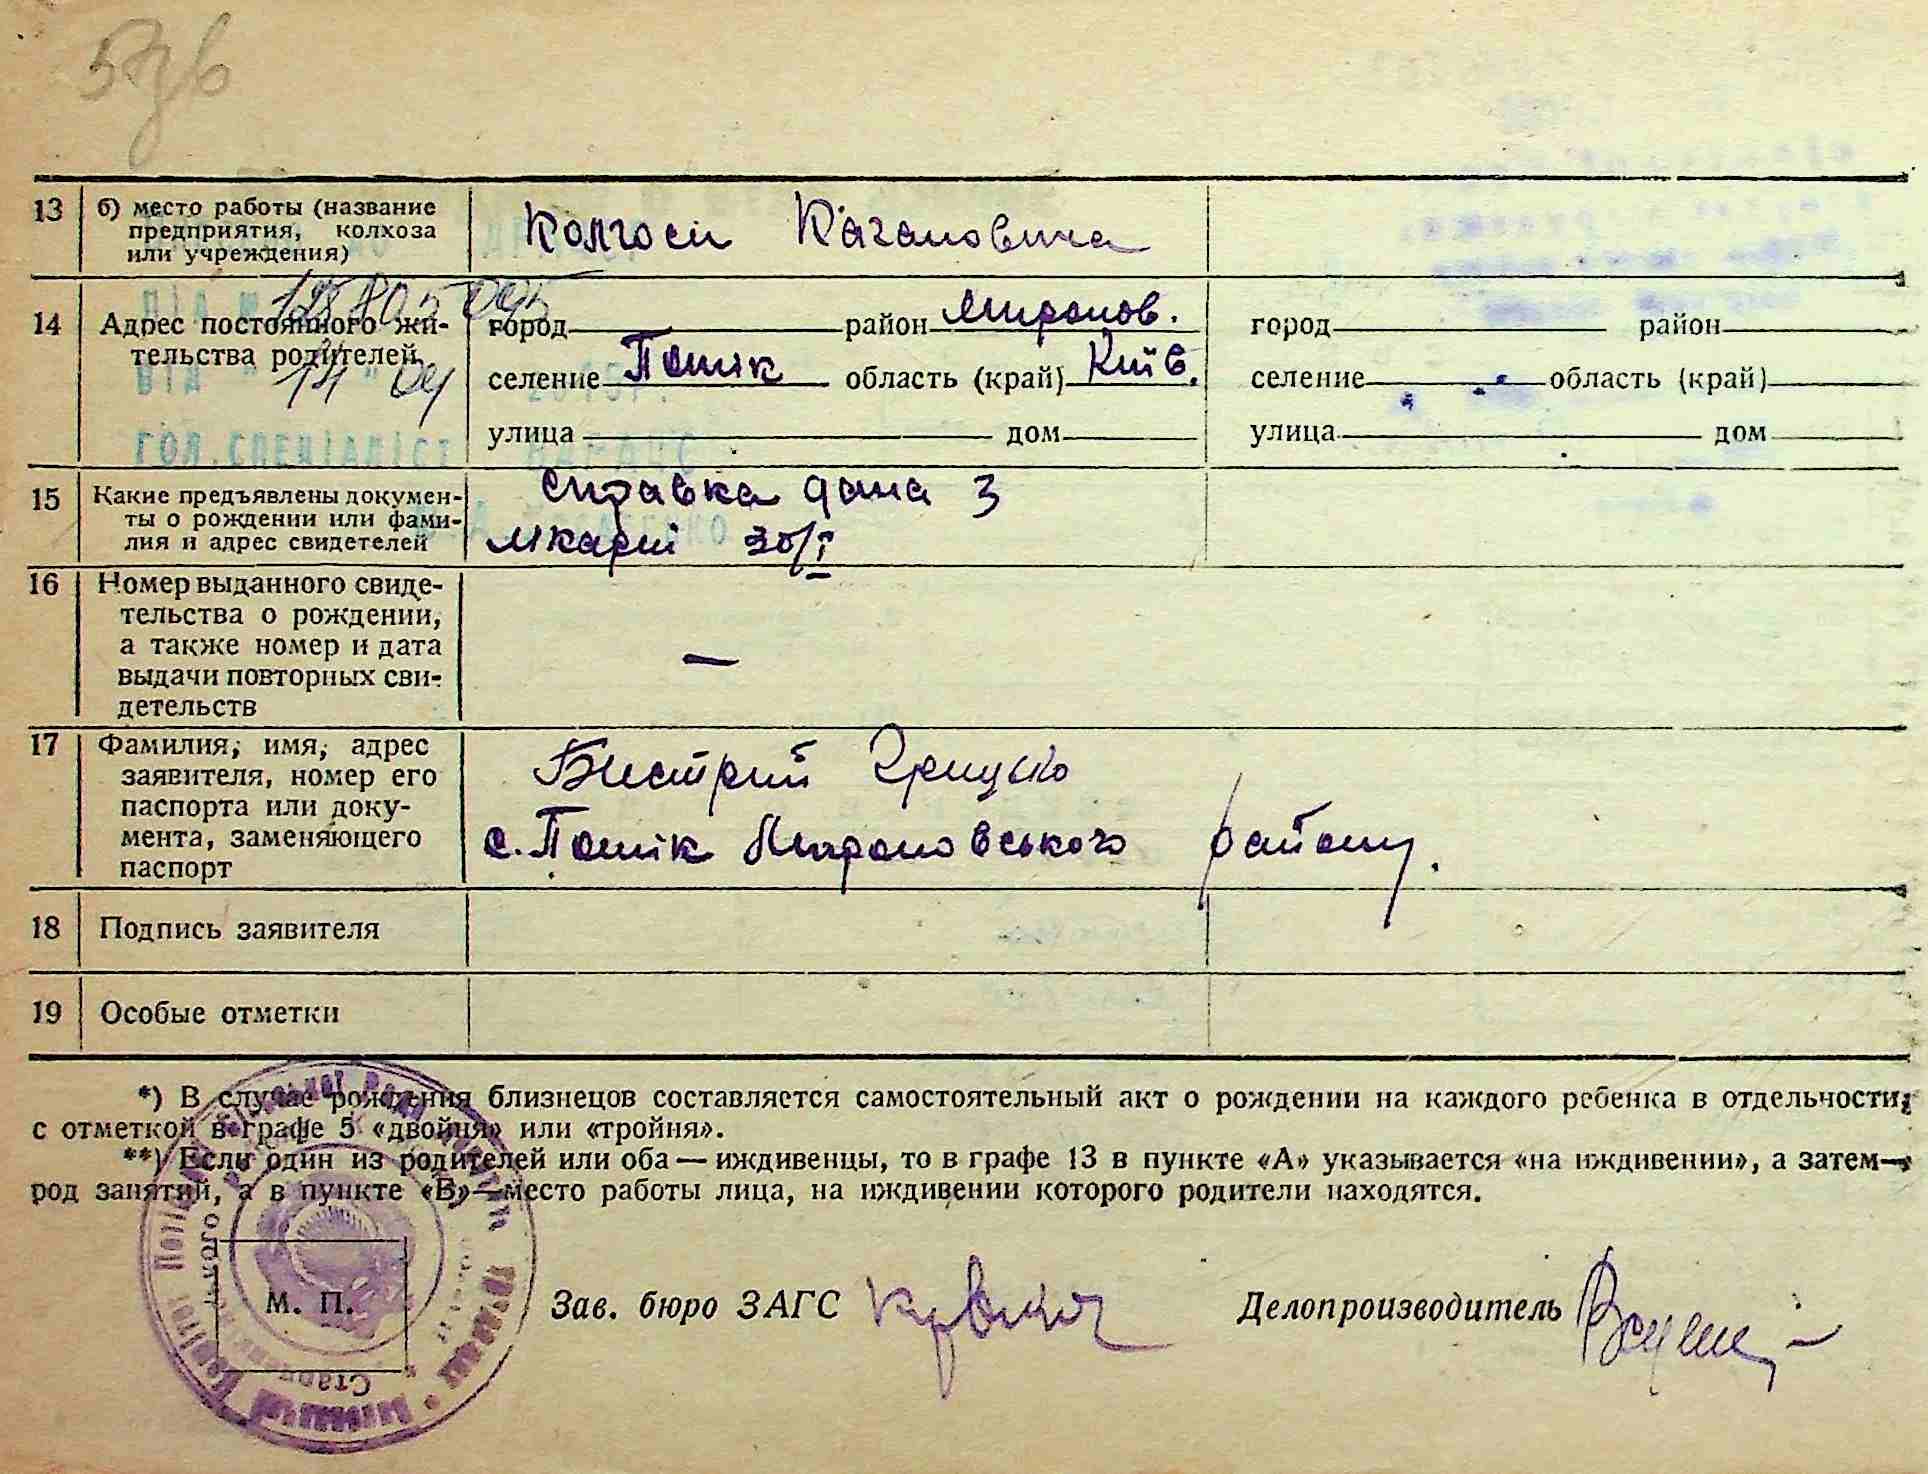 13 б) место работы (название
предприятия, колхоза
или учреждения)
Колгосп Кагановича
14 Адрес постоянного жи-
тельства родителей
город район Миронов.
селение Потік область (край) Київ.
улица дом
город район
селение область (край)
улица дом
15 Какие предъявлены докумен-
ты о рождении или фами-
лия и адрес свидетелей
Справка дана з
лікарні 30/I
16 Номер выданного свиде-
тельства о рождении,
а также номер и дата
выдачи повторных сви-
детельств
—
17 Фамилия, имя, адрес
заявителя, номер его
паспорта или доку-
мента, заменяющего
паспорт
Бистрий Грицько
с. Потік Мироновського району.
18 Подпись заявителя
19 Особые отметки
*) В случае рождения близнецов составляется самостоятельный акт о рождении на каждого ребенка в отдельности,
с отметкой в графе 5 «двойня» или «тройня».
**) Если один из родителей или оба — иждивенцы, то в графе 13 в пункте «А» указывается «на иждивении», а затем—
род занятий, а в пункте «Б»—место работы лица, на иждивении которого родители находятся.
М. П.
Зав. бюро ЗАГС
Делопроизводитель